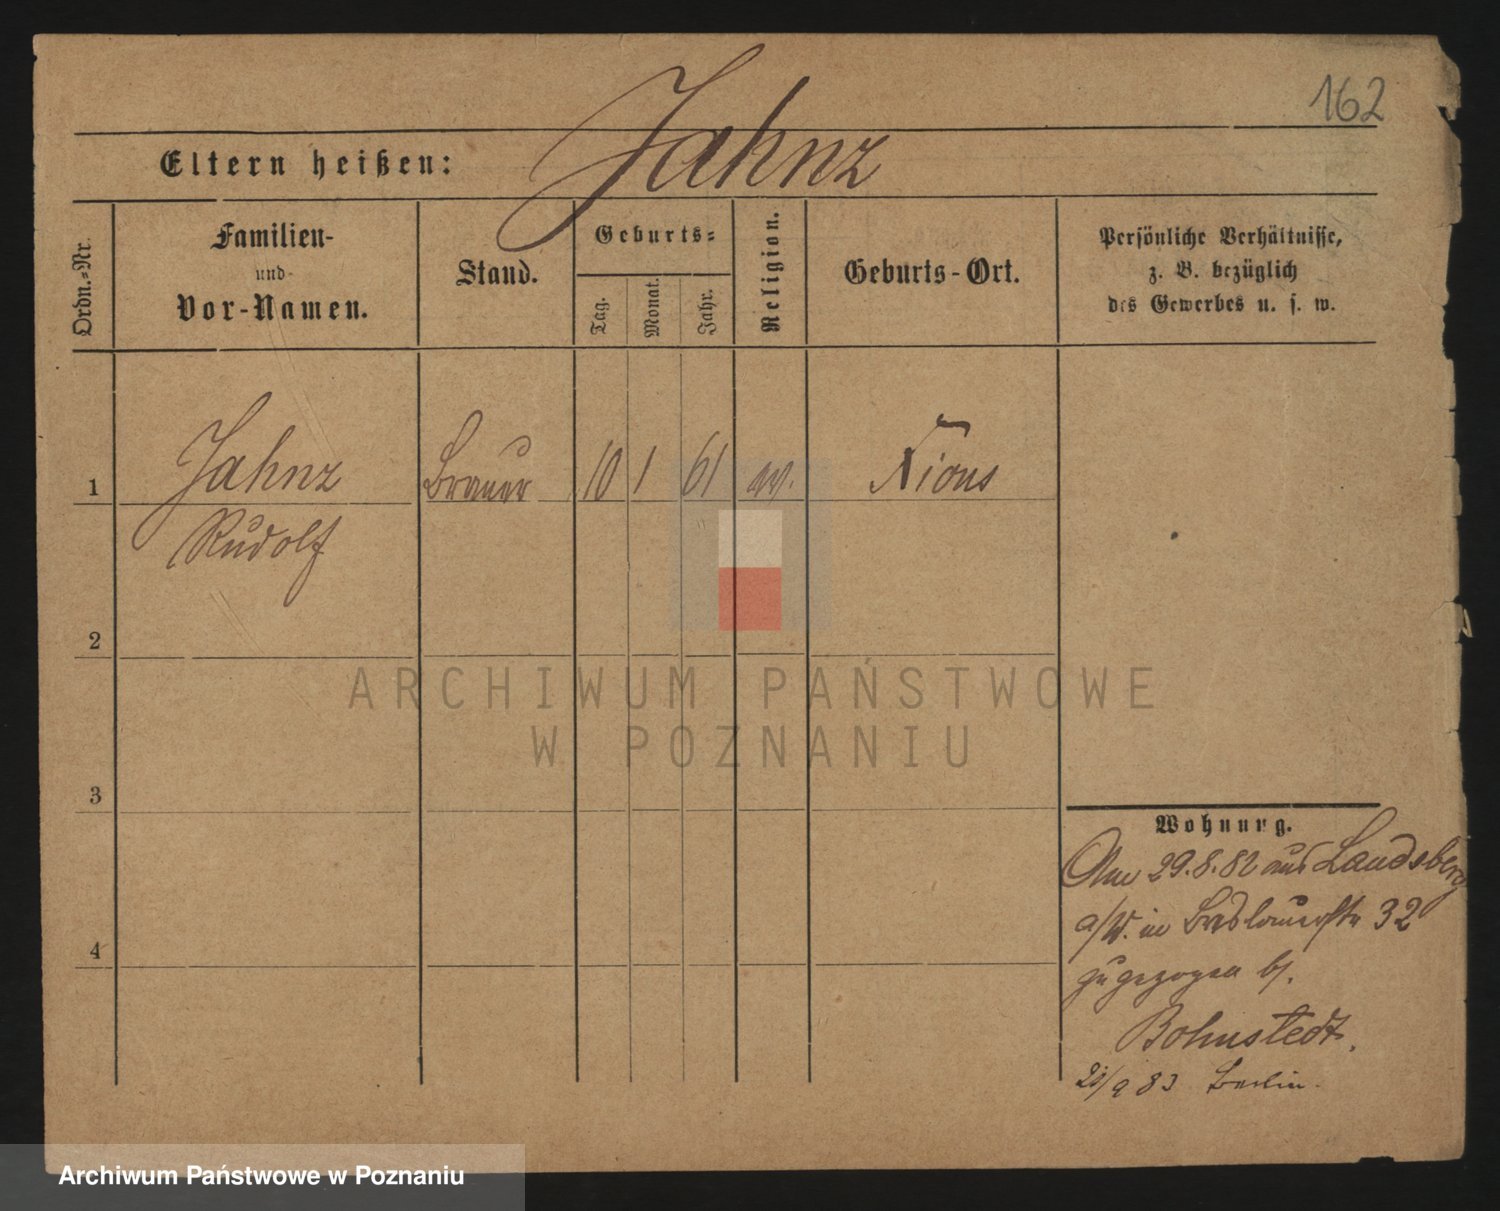 162
Jahnz
Eltern heißen:
Ordn.-Nr.
Familien-
und
Vor-Namen.
Stand.
Geburts-
Tag.
Monat.
Jahr.
Religion.
Geburts-Ort.
Persönliche Verhältnisse,
z. B. bezüglich
des Gewerbes u. s. w.
1
Jahnz
Rudolf
Brauer
10
1
61
ev.
Xions
2
3
4
Wohnung.
Am 29.8.82 aus Landsberg
a/W. in Breslauerstr 32
zugezogen b/.
Bohnstedt.
9 83 Berlin.
ARCHIWUM PAŃSTWOWE
W POZNANIU
Archiwum Państwowe w Poznaniu